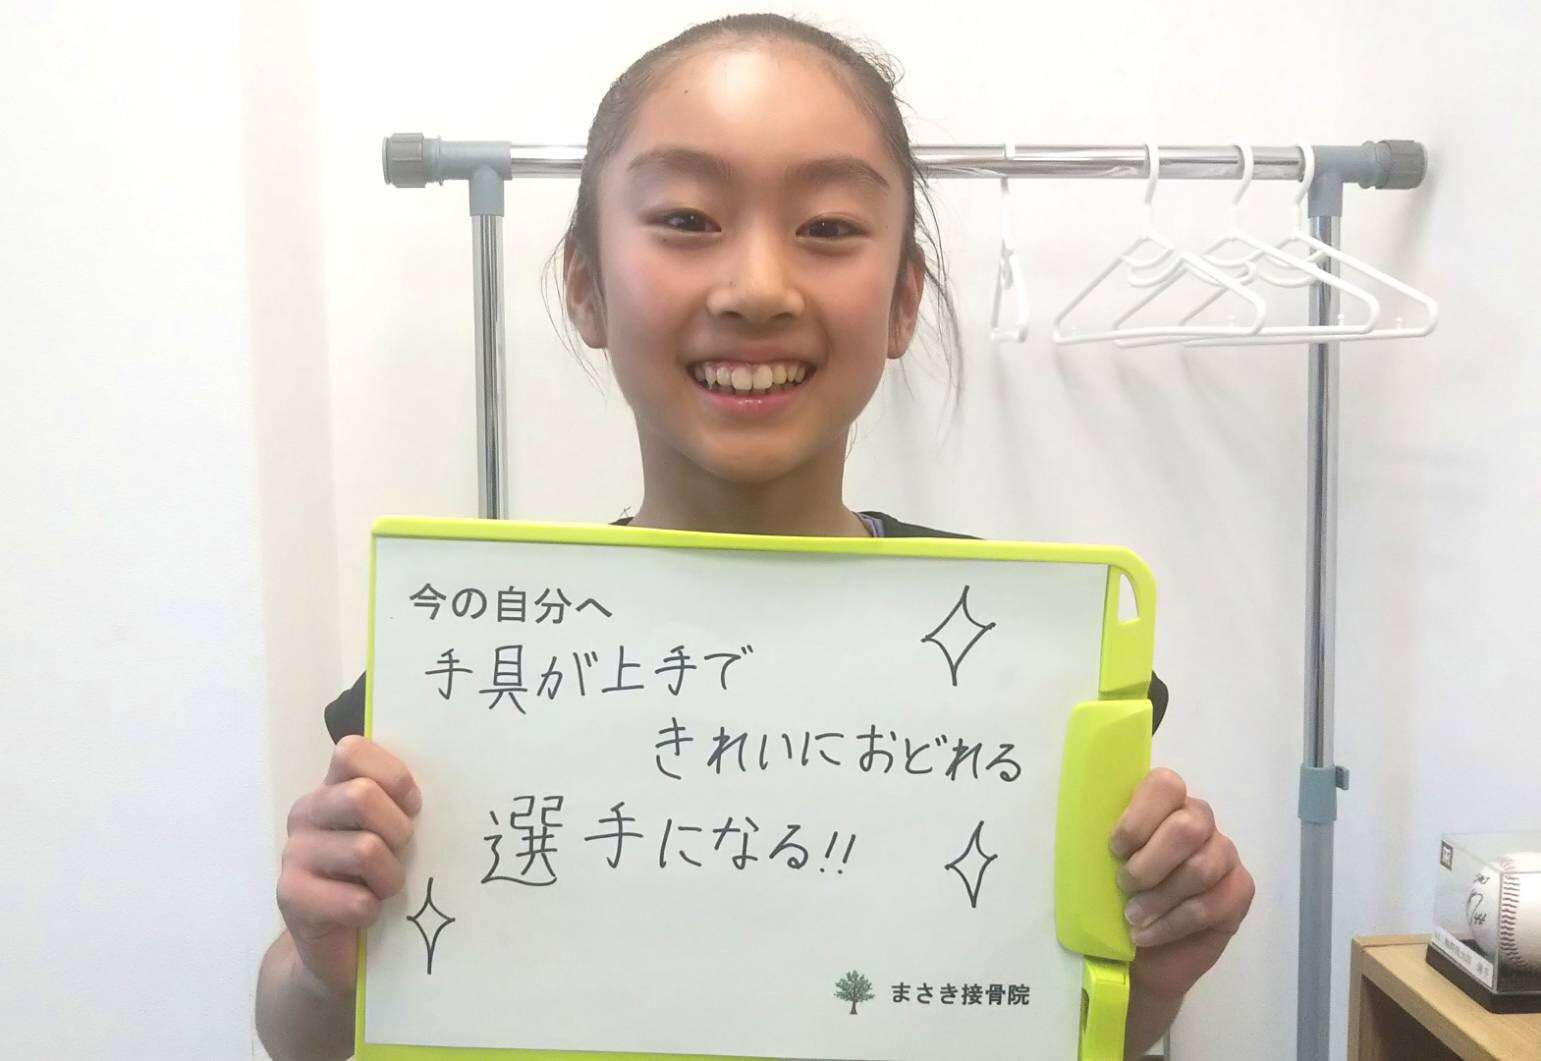 今の自分へ
手具が上手で
きれいにおどれる
選手になる!!
まさき接骨院